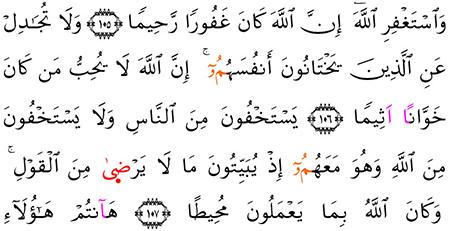 وَاسْتَغْفِرِ اللَّهَ إِنَّ اللَّهَ كَانَ غَفُورًا رَّحِيمًا ۝١٠٥ وَلَا تُجَٰدِلْ
عَنِ الَّذِينَ يَخْتَانُونَ أَنفُسَهُمُۥٓ ۚ إِنَّ اللَّهَ لَا يُحِبُّ مَن كَانَ
خَوَّانًا اَثِيمًا ۝١٠٦ يَسْتَخْفُونَ مِنَ النَّاسِ وَلَا يَسْتَخْفُونَ
مِنَ اللَّهِ وَهُوَ مَعَهُمُۥٓ إِذْ يُبَيِّتُونَ مَا لَا يَرْضَىٰ مِنَ الْقَوْلِ ۚ
وَكَانَ اللَّهُ بِمَا يَعْمَلُونَ مُحِيطًا ۝١٠٧ هَآنتُمْ هَٰٓؤُلَآءِ